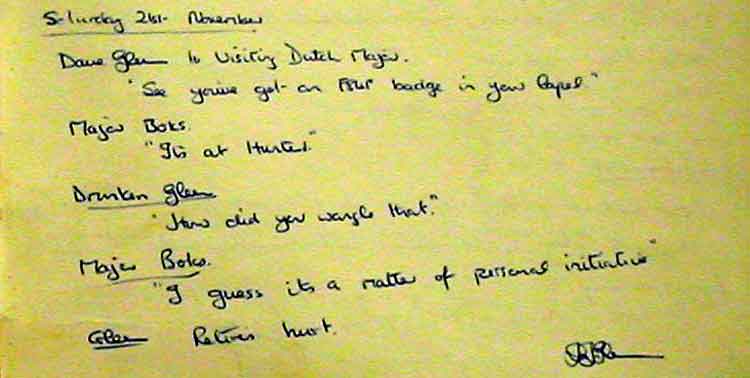 Saturday 21st November
Dave Glen to Visiting Dutch Major.
"See you've got an badge in your lapel"
Major Boks.
"Its at
Drunken Glen
"How did you wangle that."
Major Boks.
"I guess its a matter of personal initiative"
Glen Retires hurt.